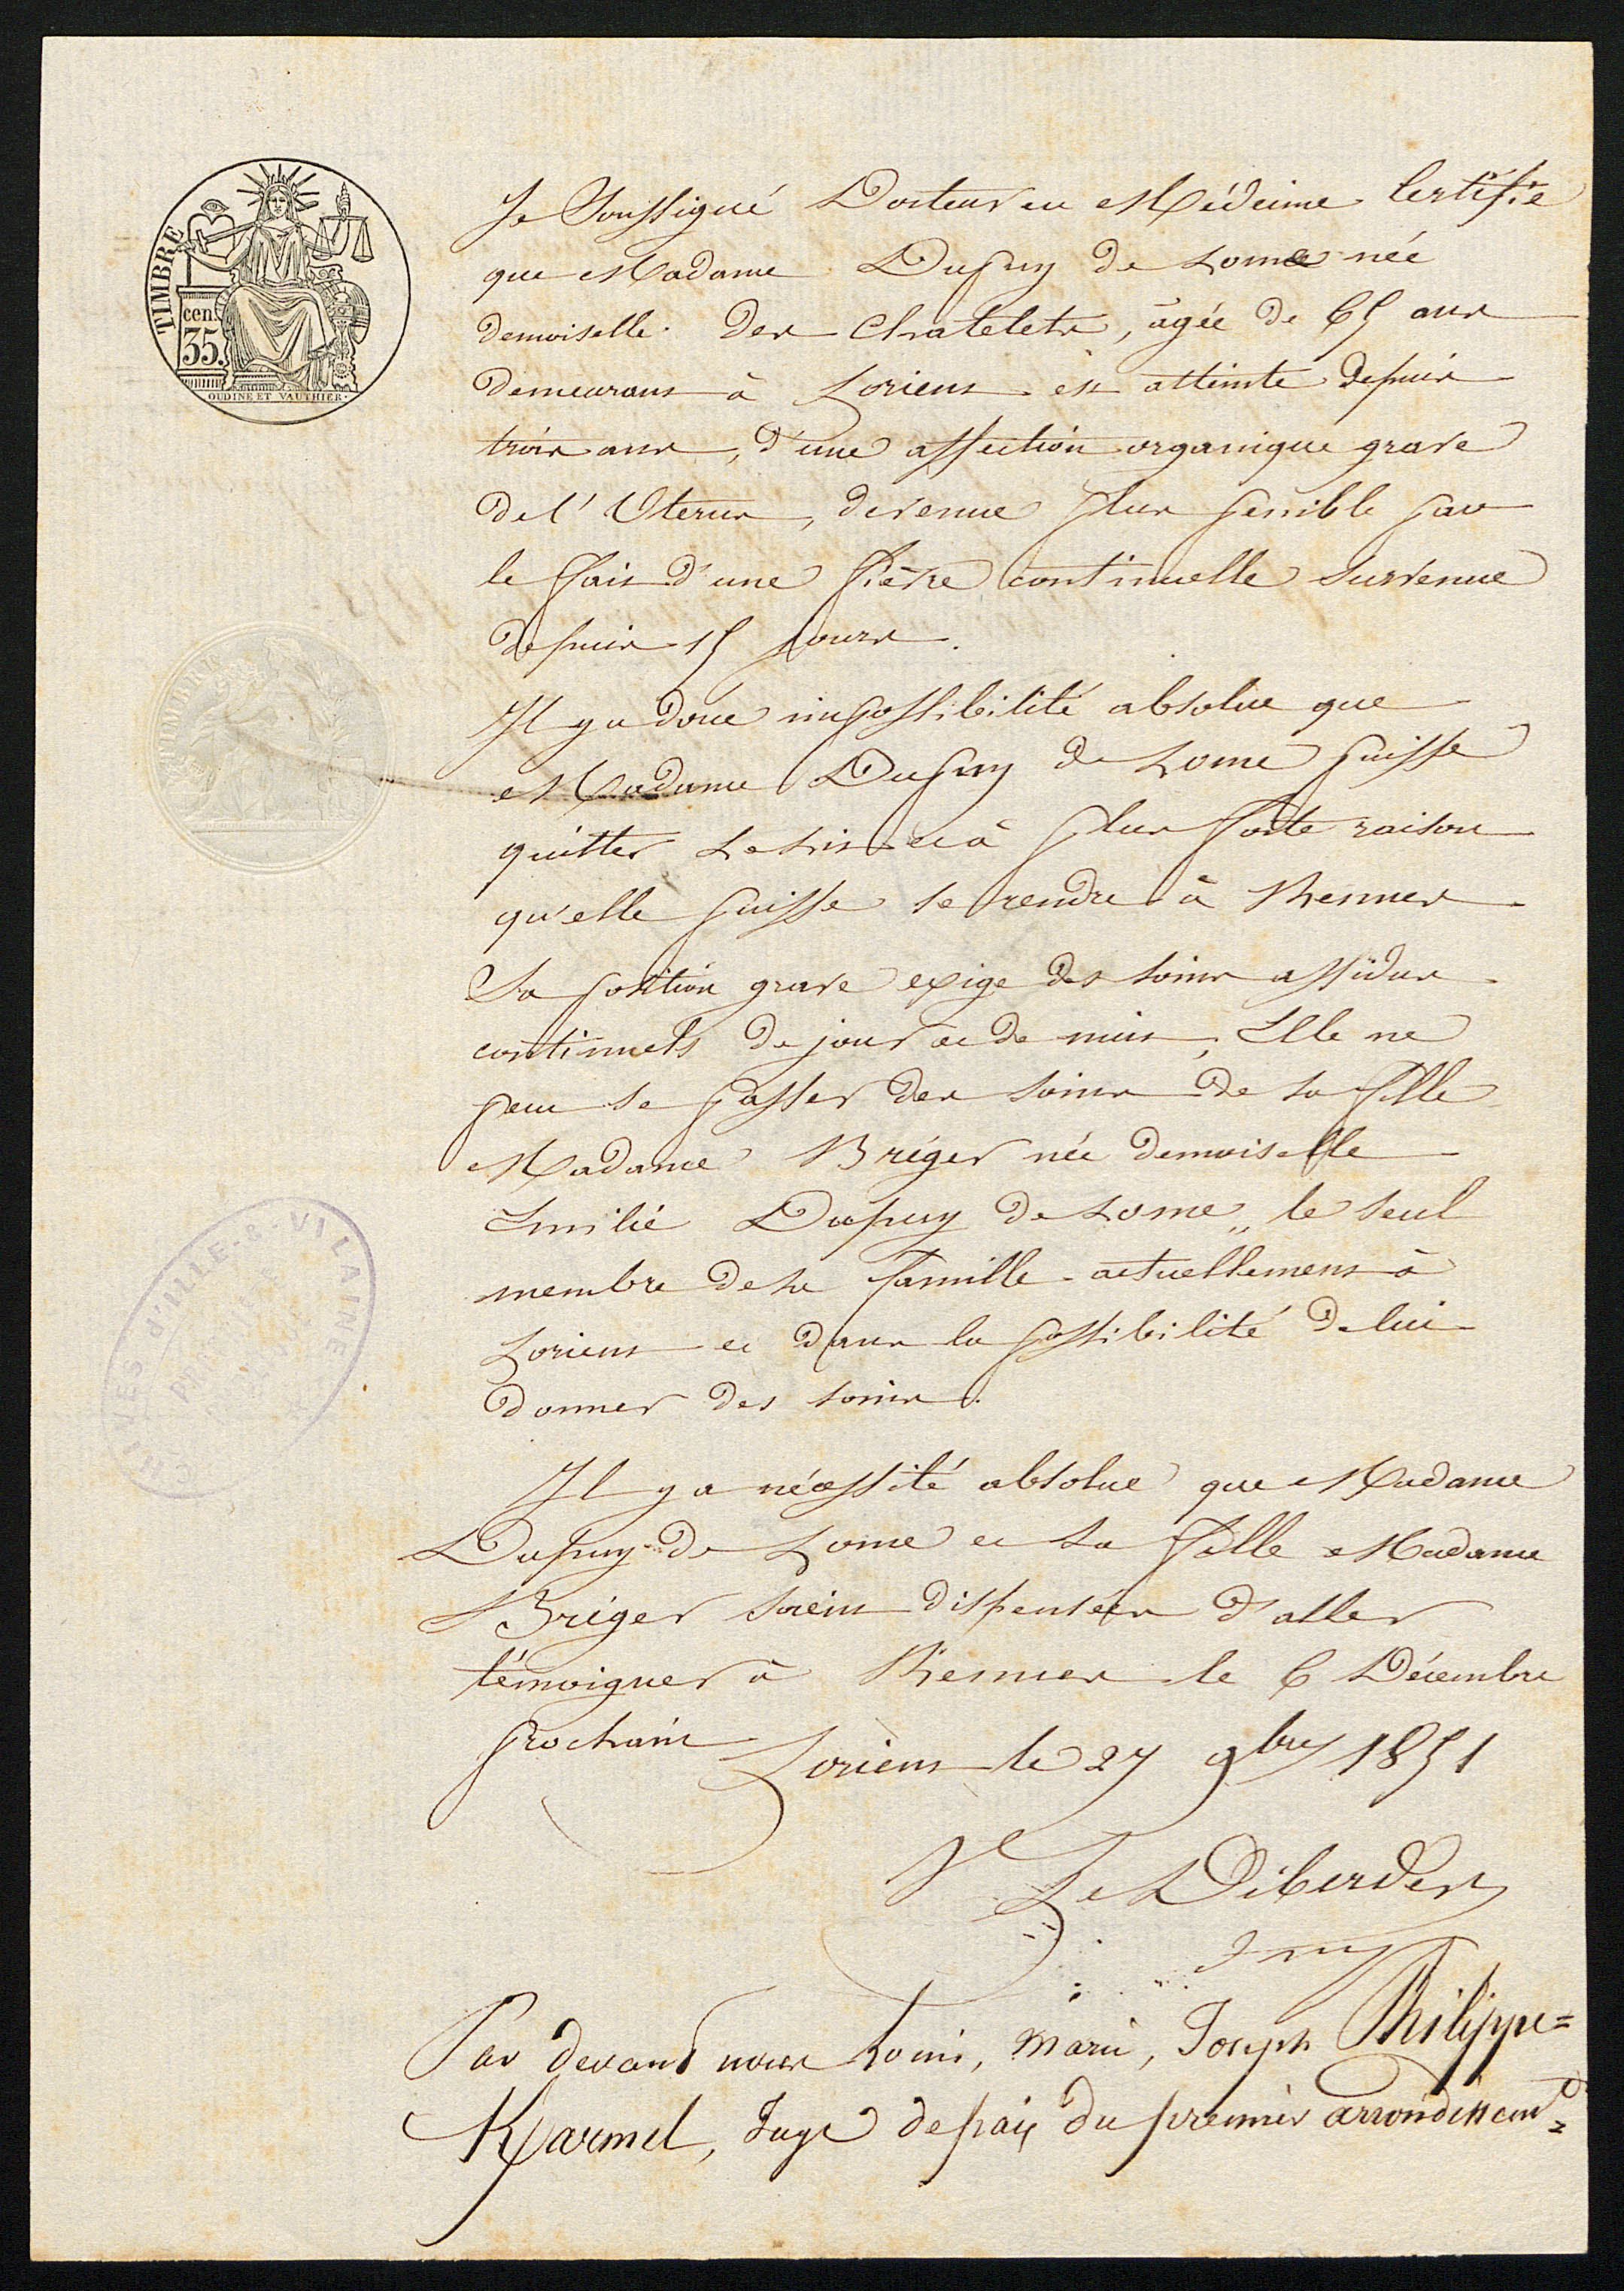 TIMBRE
cen.
35.
OUDINE ET VAUTHIER.
Je Soussigné Docteur en Médecine Certifie
que Madame Dupuy de Lome née
demoiselle des Chatelets, agée de 65 ans
demeurant à Lorient est atteinte depuis
trois ans, d'une affection organique grave
de l'Uterus, devenue plus penible par
le fait d'une fièvre continuelle survenue
depuis 15 jours.
Il y a donc impossibilité absolue que
Madame Dupuy de Lome puisse
quitter Le Lit et à plus forte raison
qu'elle puisse se rendre à Rennes.
Sa position grave exige des soins assidus
continuels de jour et de nuit, Elle ne
peut se passer des soins de sa fille
Madame Bréger née demoiselle
Emilie Dupuy de Lome,, le seul
membre de sa famille actuellement à
Lorient et dans la possibilité de lui
donner des soins.
Il y a nécessité absolue que Madame
Dupuy de Lome et sa fille Madame
Bréger soient dispensées d'aller
témoigner à Rennes le 6 Décembre
prochain
Lorient le 27 9bre 1851
Le Diberder
dmp
Par devant nous Louis, Marie, Joseph Philippe=
Kjarmel, Juge de paix du premier arrondissemt=
CHIVES d'ILLE-&-VILAINE